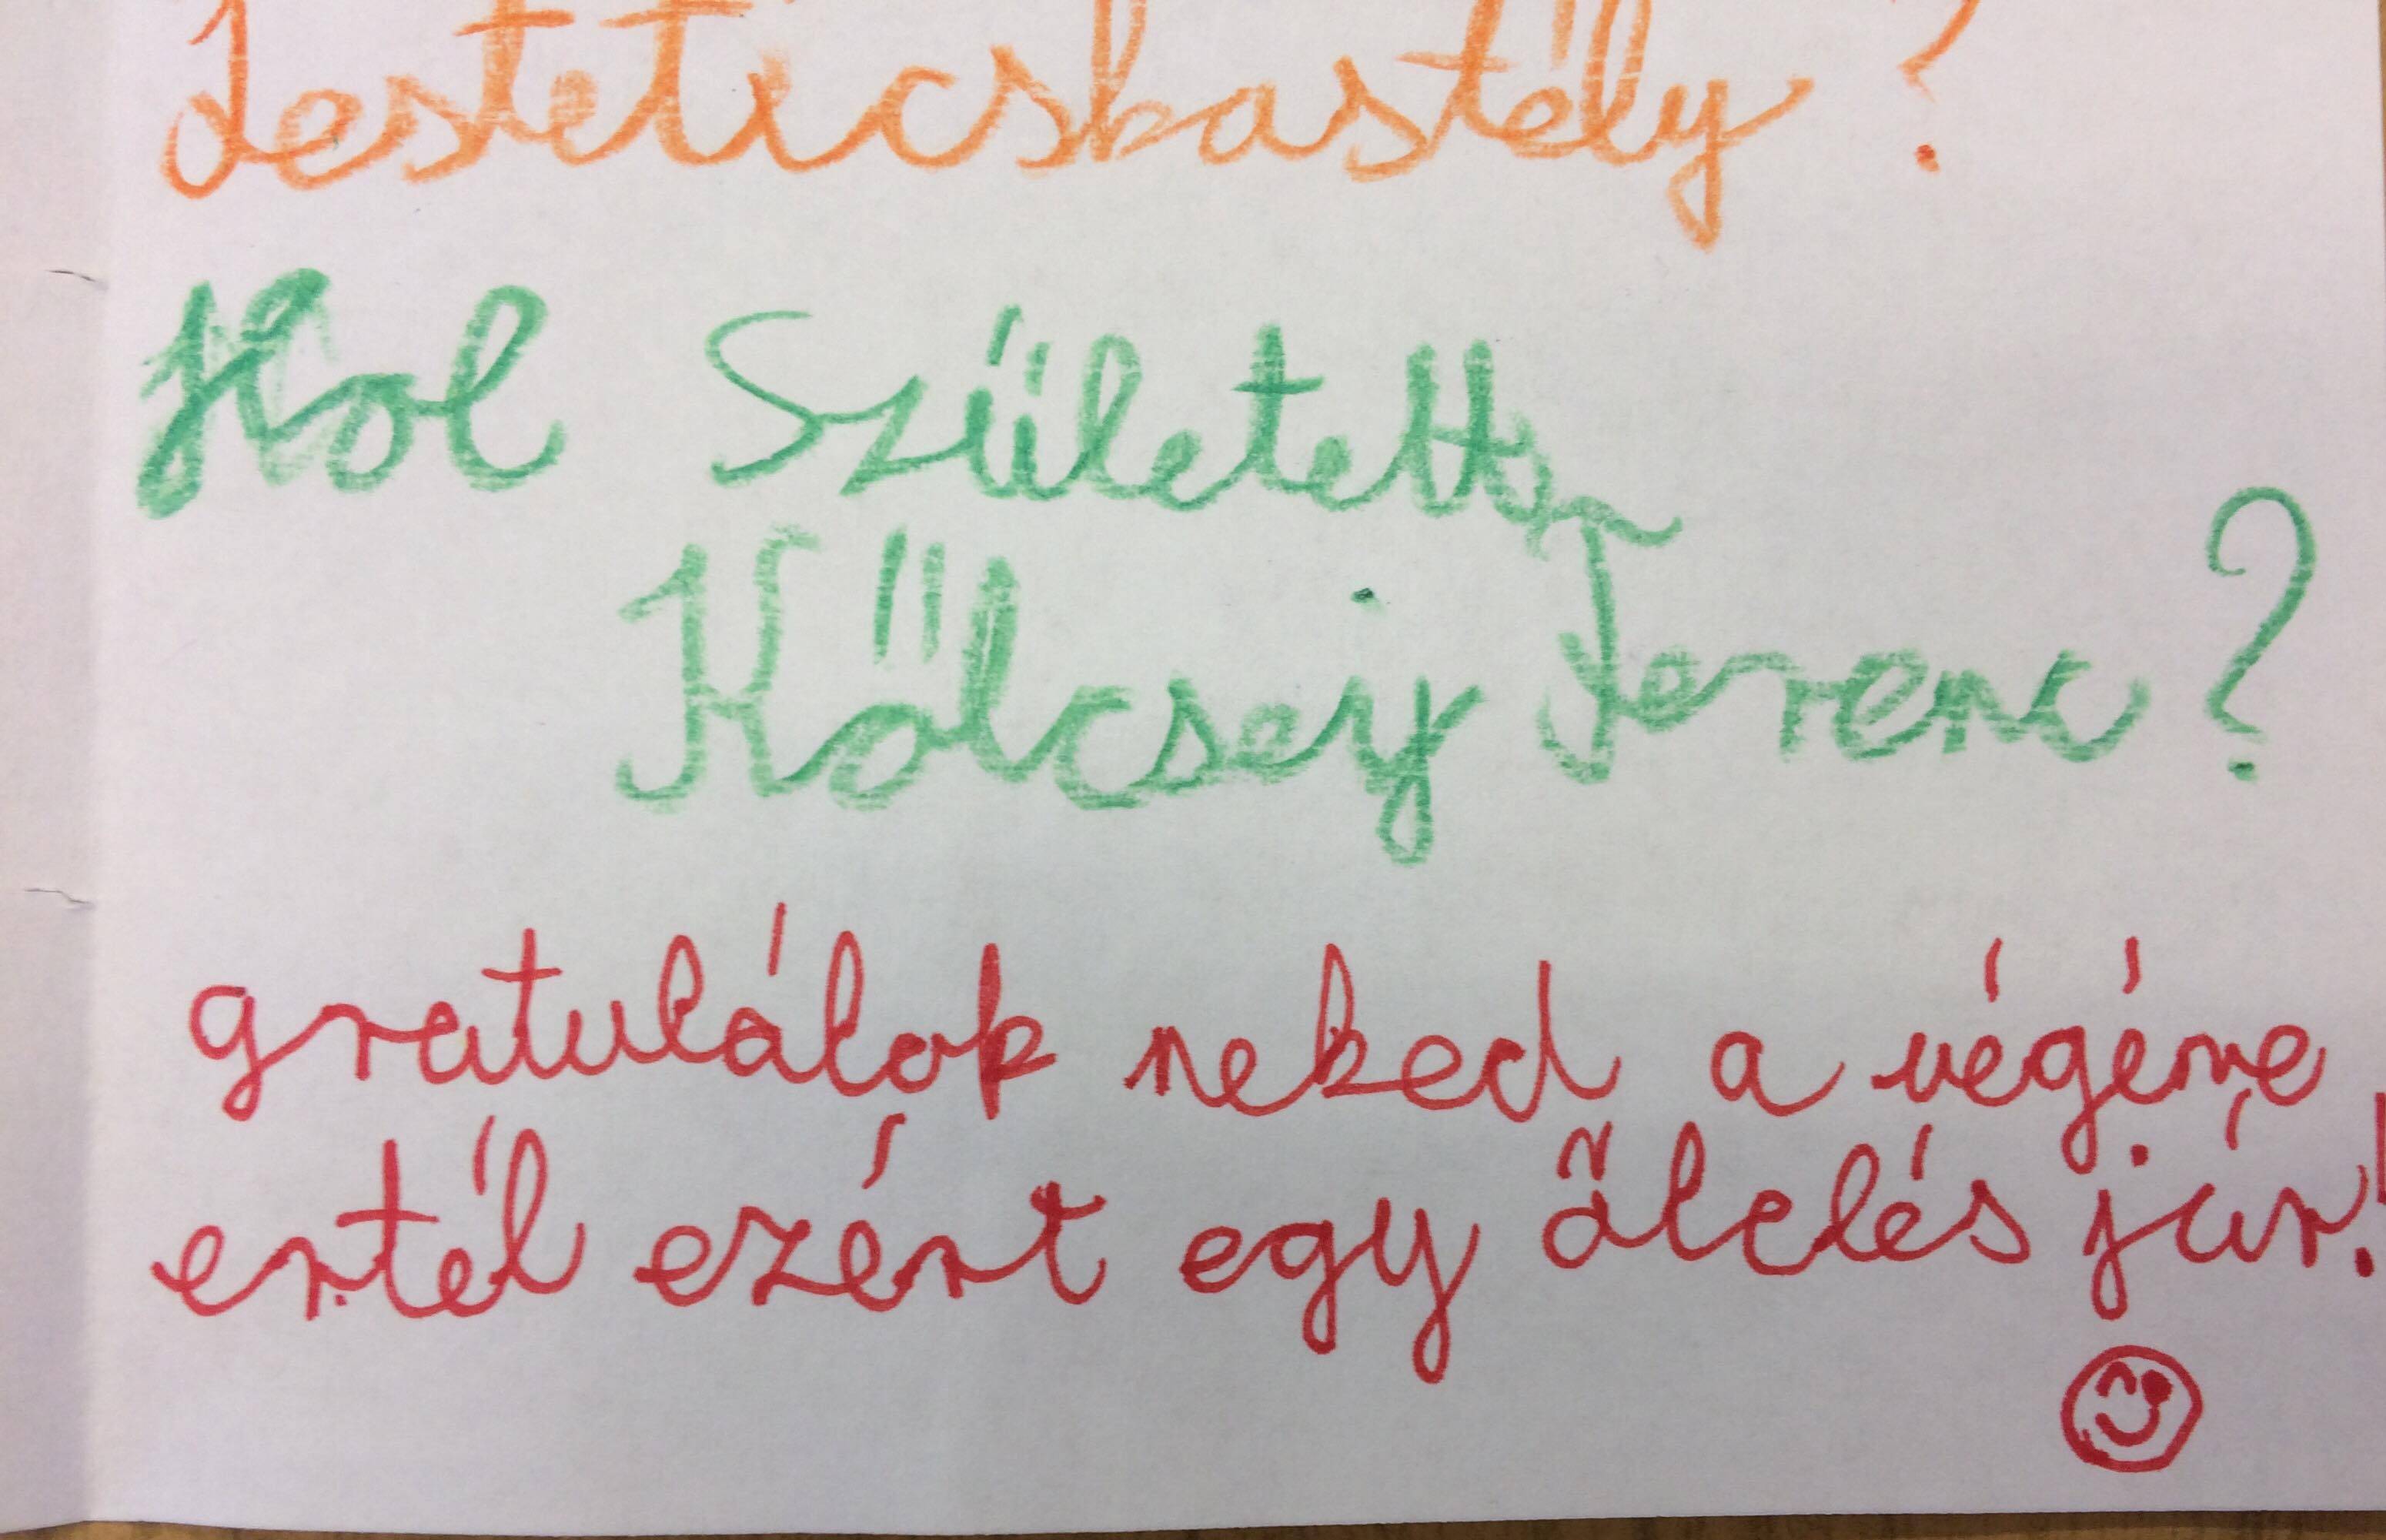 Festeticskastély ?
Hol Született
Kőlcsey Ferenc ?
gratulálok neked a végére
ertél ezért egy őlelés jár!